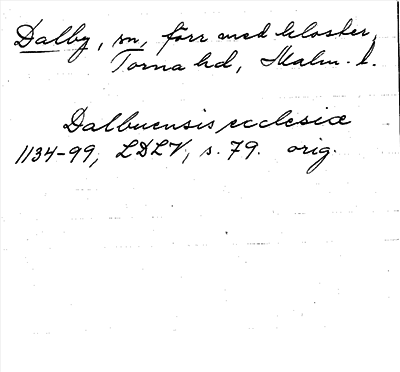 Dalby, sn, förr med kloster,
Torna hd, Malm. l.
Dalbuensis ecclesiæ
1134-99, LDLV, s. 79. orig.